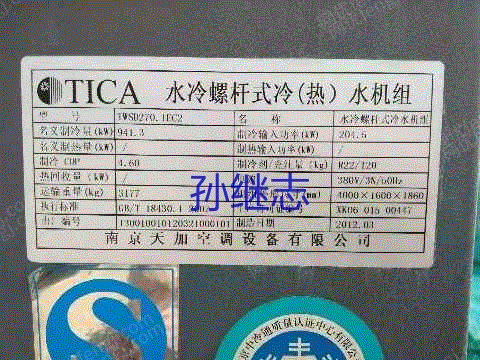 TICA 水冷螺杆式冷(热)水机组
型 号 TWSD270.1EC2 名 称 水冷螺杆式冷水机组
名义制冷量(kW) 941.3 制冷输入功率(kW) 204.5
名义制热量(kW) / 制热输入功率(kW) /
制冷 COP 4.60 制冷剂/充注量(kg) R22/120
热回收量(kW) / 380V/3N/50Hz
运输重量(kg) 3177 4000×1600×1860
执行标准 GB/T 18430.1 XK06-015-00447
出厂编号 制造日期 2012.03
南京天加空调设备有限公司
孙继志
京中冷通质量认证中心有限